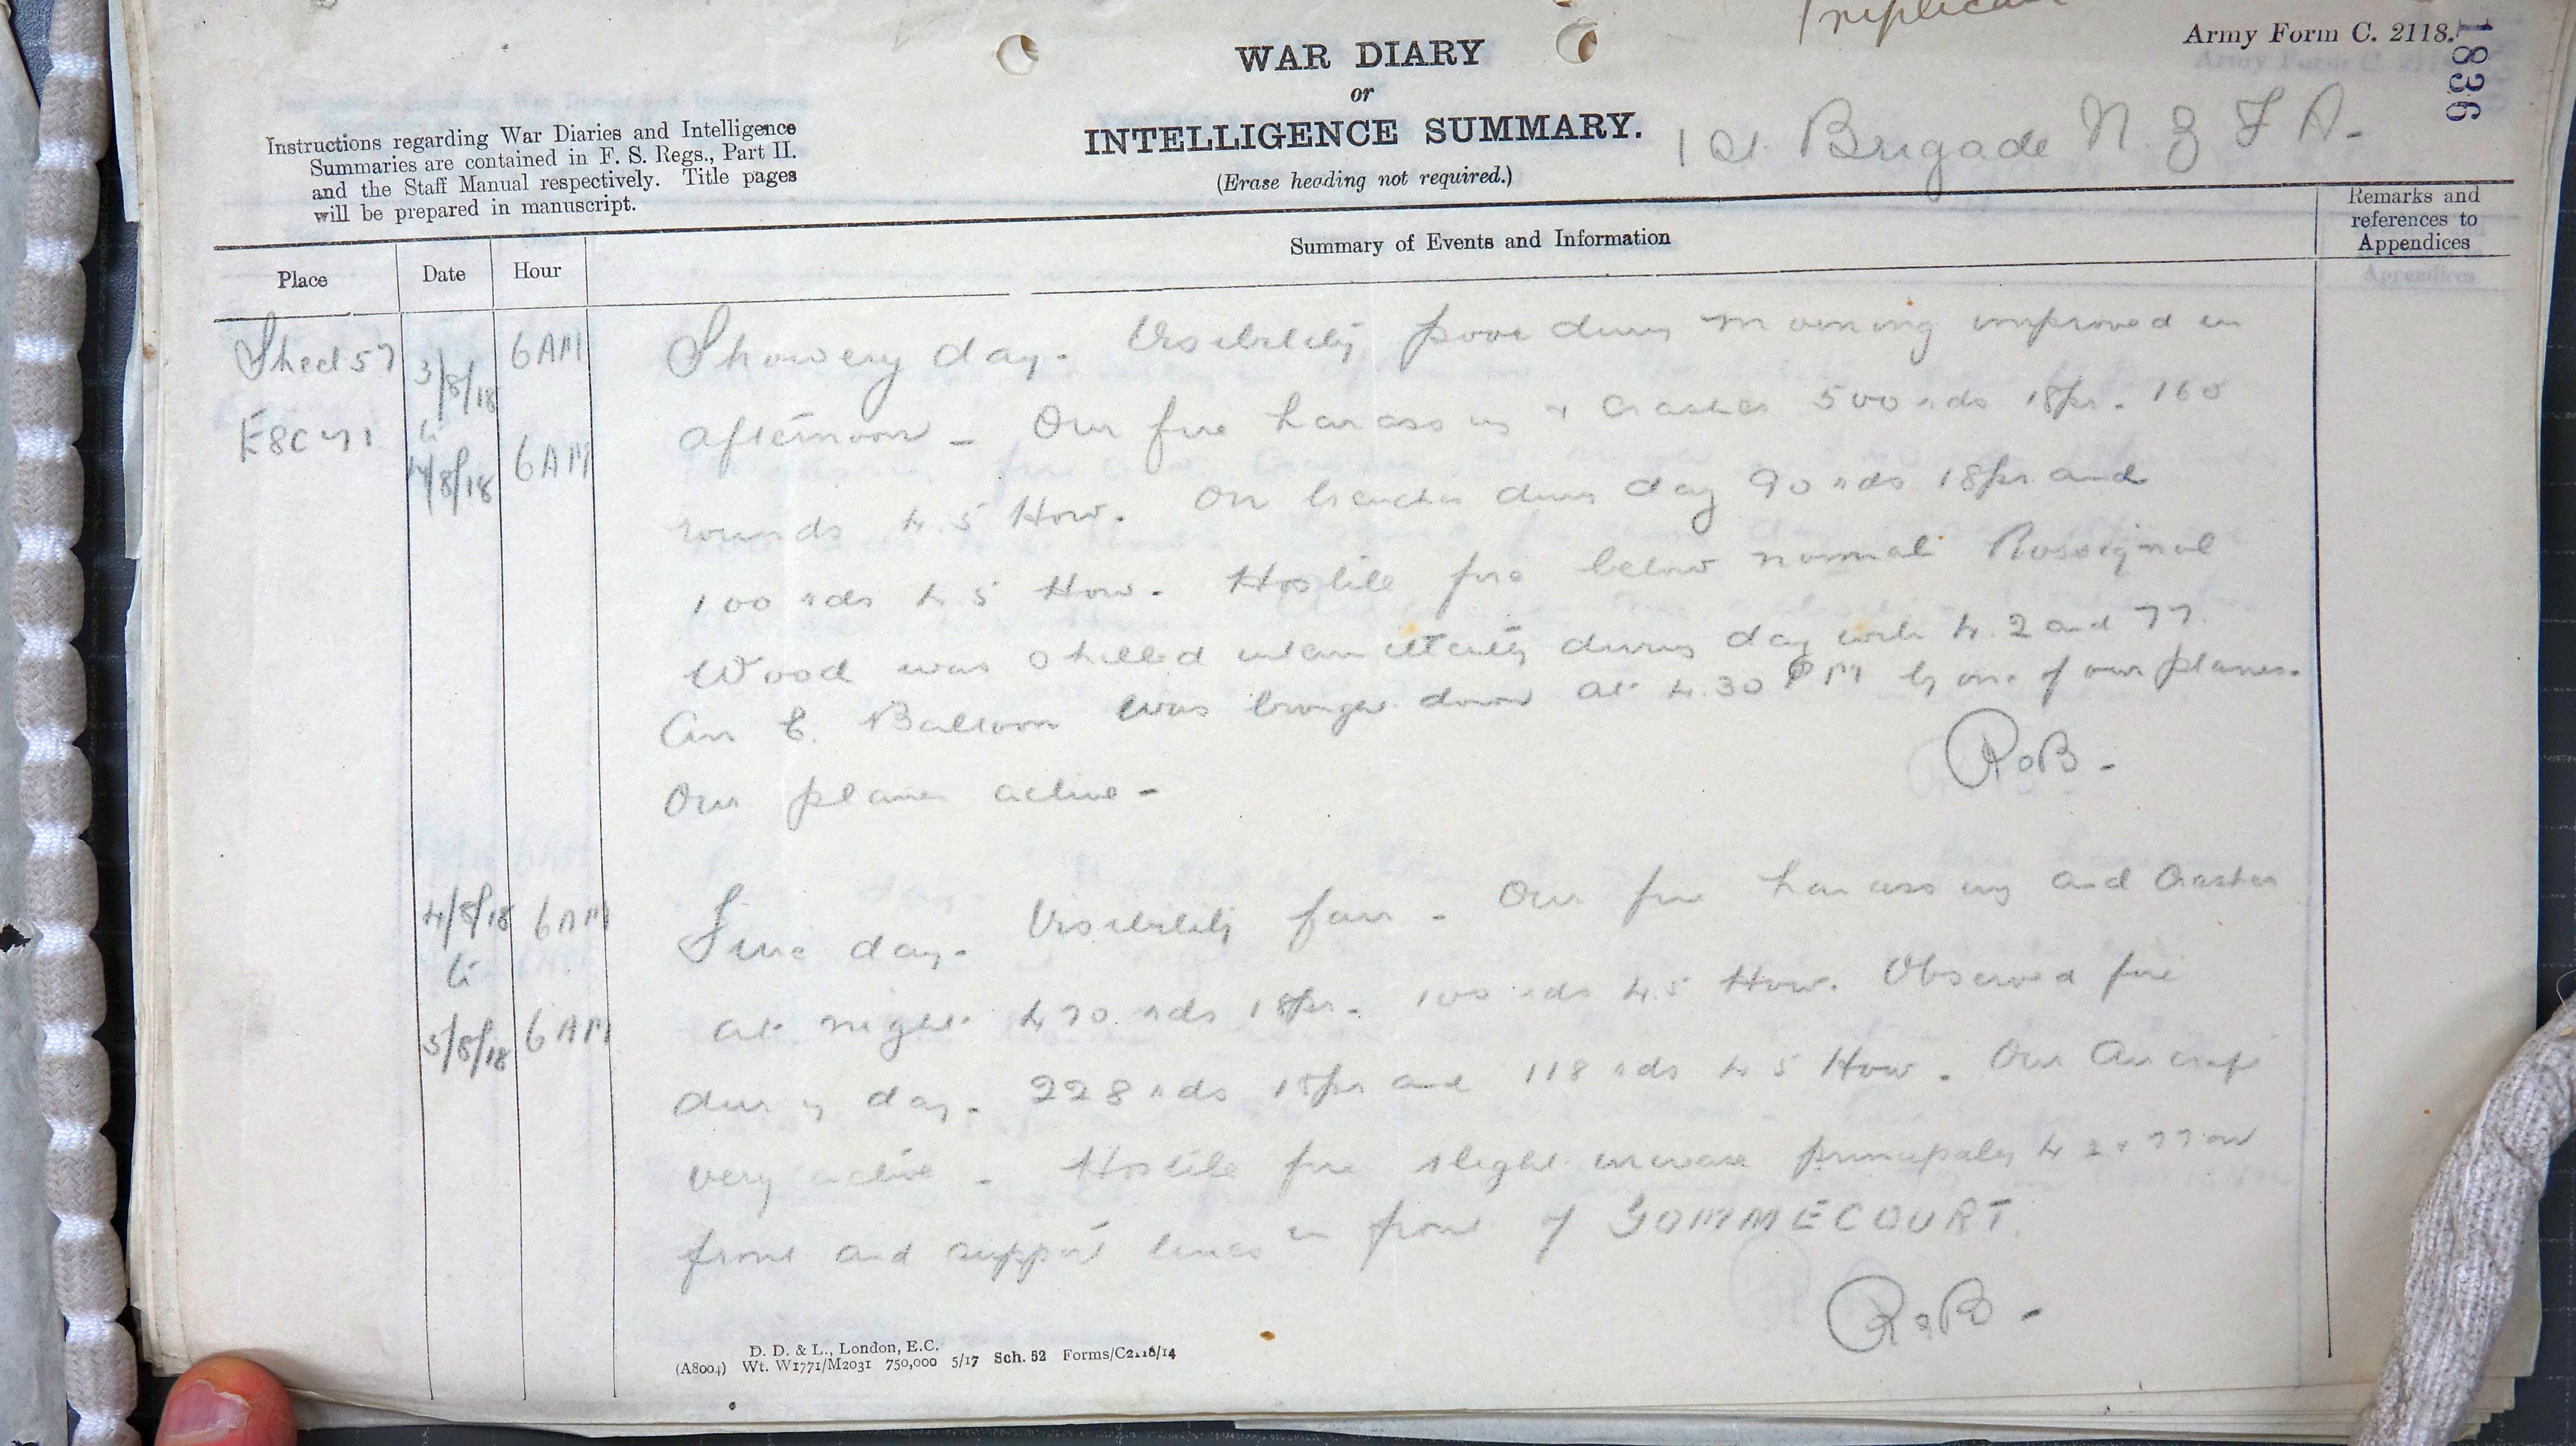 Triplicate
Army Form C. 2118.
1836
WAR DIARY
or
INTELLIGENCE SUMMARY.
(Erase heading not required.)
1st Brigade N.Z.F.A.
Instructions regarding War Diaries and Intelligence
Summaries are contained in F. S. Regs., Part II.
and the Staff Manual respectively. Title pages
will be prepared in manuscript.
Place
Date
Hour
Summary of Events and Information
Remarks and
references to
Appendices
Sheet 57
3/8/18
6AM
Showery day. Visibility poor during morning improved in
E8C
to
4/8/18
6AM
afternoon - Our fire harassing & crashes 500 rds 18pr. 160
rounds 4.5 How. On trenches during day 90 rds 18pr and
100 rds 4.5 How. Hostile fire below normal Rossignol
Wood was shelled intermittently during day with 4.2 and 77.
An E. Balloon was brought down at 4.30 PM by one of our planes.
Our planes active -
RoB -
4/8/18 6AM
to
5/8/18 6AM
Fine day. Visibility fair - Our fire harassing and crashes
at night 470 rds 18pr. 100 rds 4.5 How. Observed fire
during day. 228 rds 18pr and 118 rds 4.5 How. Our Aircraft
very active - Hostile fire slight increase principally 4.2 & 77 on
front and support lines in front of GOMMECOURT.
RoB -
D. D. & L., London, E.C.
(A8004) Wt. W1771/M2031 750,000 5/17 Sch. 52 Forms/C2118/14